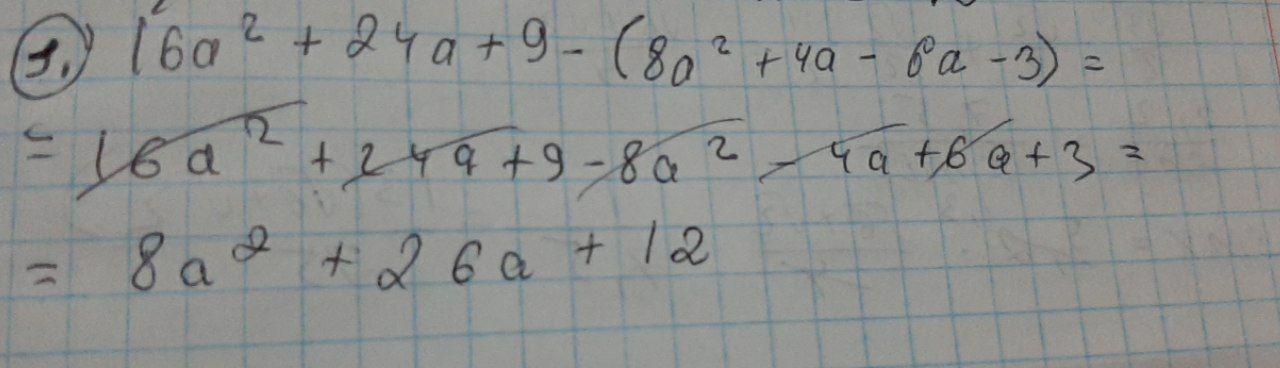 1.) 16a² + 24a + 9 - (8a² + 4a - 6a - 3) =
= 16a² + 24a + 9 - 8a² - 4a + 6a + 3 =
= 8a² + 26a + 12